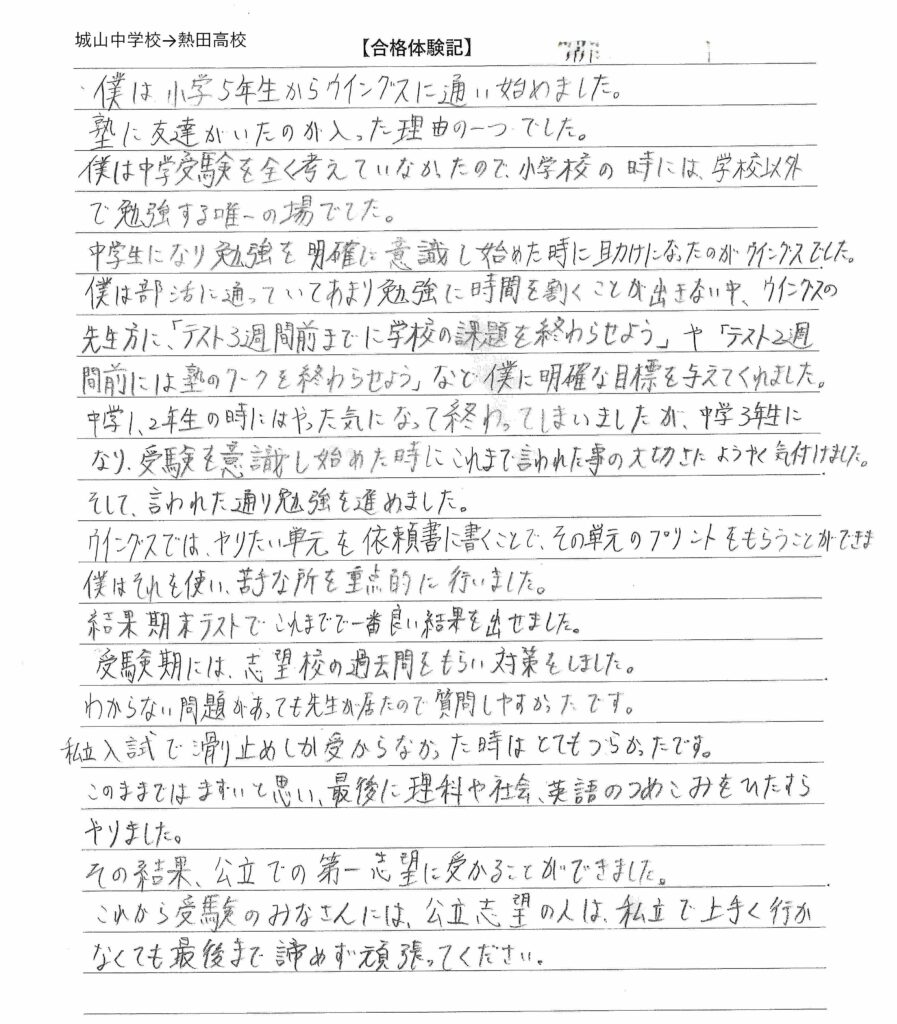 城山中学校→熱田高校
【合格体験記】
僕は小学5年生からウイングスに通い始めました。
塾に友達がいたのが入った理由の一つでした。
僕は中学受験を全く考えていなかったので、小学校の時には、学校以外
で勉強する唯一の場でした。
中学生になり勉強を明確に意識し始めた時に助けになったのがウイングスでした。
僕は部活に通っていてあまり勉強に時間を割くことが出きない中、ウイングスの
先生方に、「テスト3週間前までに学校の課題を終わらせよう」や「テスト2週
間前には塾のワークを終わらせよう」など僕に明確な目標を与えてくれました。
中学1、2年生の時にはやった気になって終わってしまいましたが、中学3年生に
なり、受験を意識し始めた時にこれまで言われた事の大切さにようやく気付けました。
そして、言われた通り勉強を進めました。
ウイングスでは、やりたい単元を依頼書に書くことで、その単元のプリントをもらうことができま
僕はそれを使い、苦手な所を重点的に行いました。
結果期末テストでこれまでで一番良い結果を出せました。
受験期には、志望校の過去問をもらい対策をしました。
わからない問題があっても先生が居たので質問しやすかったです。
私立入試で滑り止めしか受からなかった時はとてもつらかったです。
このままではまずいと思い、最後に理科や社会、英語のつめこみをひたすら
やりました。
その結果、公立での第一志望に受かることができました。
これから受験のみなさんには、公立志望の人は、私立で上手く行か
なくても最後まで諦めず頑張ってください。